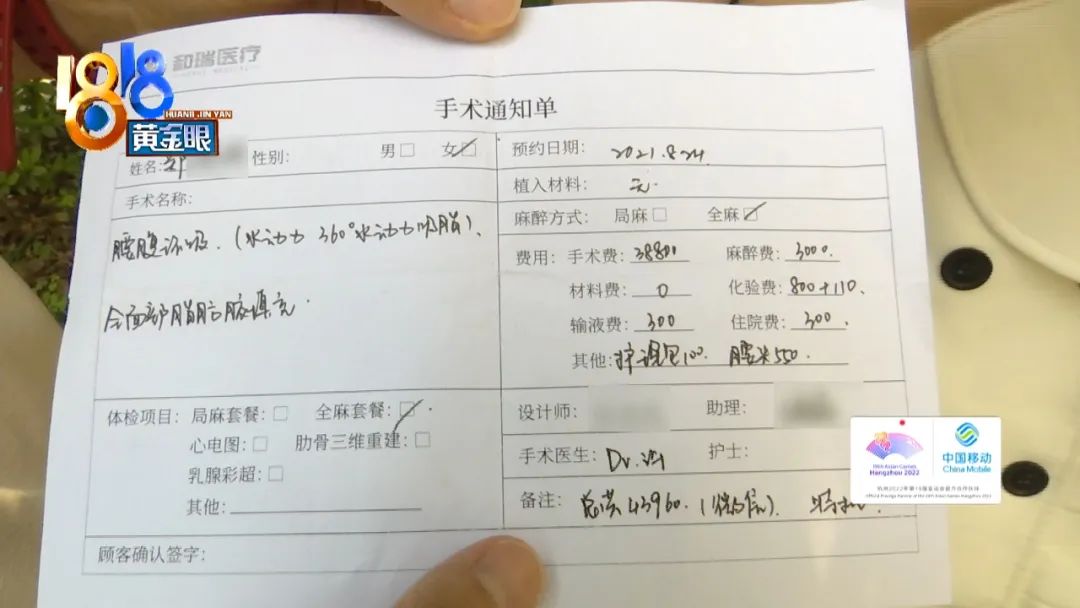 1818
HUANG JIN YAN
黄金眼
和瑞医疗
手术通知单
姓名: 郑
性别: 男□ 女☑
预约日期: 2021.8.24
手术名称:
植入材料: 无.
麻醉方式: 局麻□ 全麻☑
腰腹环吸.(水动力 360°水动力吸脂)、
全面部脂肪胶填充.
费用: 手术费: 38800 麻醉费: 3000.
材料费: 0 化验费: 800+110.
输液费: 300 住院费: 300.
其他: 护理包100. 腰夹550.
体检项目: 局麻套餐: □ 全麻套餐: ☑
心电图: □ 肋骨三维重建: □
乳腺彩超: □
其他:
设计师: 助理:
手术医生: Dr. 护士:
备注: 总共43960.(微信).
顾客确认签字:
19th Asian Games
Hangzhou 2022
中国移动
China Mobile
杭州2022年第19届亚运会官方合作伙伴
Official Prestige Partner of the 19th Asian Games Hangzhou 2022